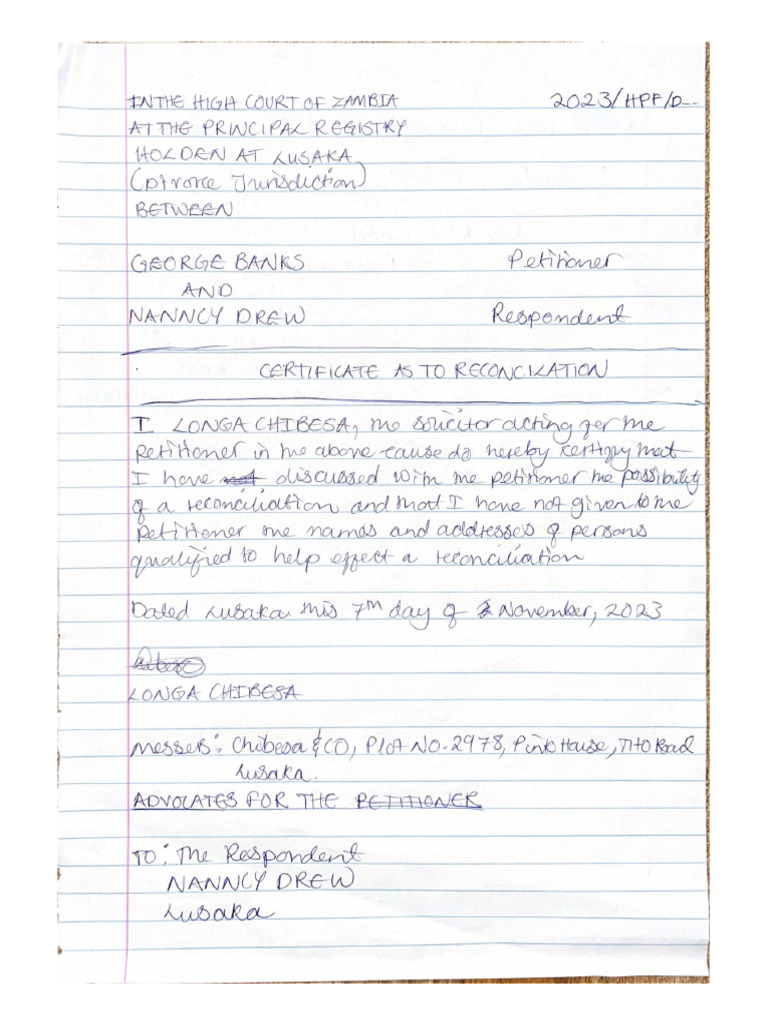 IN THE HIGH COURT OF ZAMBIA 2023/HPF/D--
AT THE PRINCIPAL REGISTRY
HOLDEN AT LUSAKA
(Divorce Jurisdiction)
BETWEEN
GEORGE BANKS Petitioner
AND
NANNCY DREW Respondent
CERTIFICATE AS TO RECONCILATION
I LONGA CHIBESA, the solicitor acting for the
Petitioner in the above cause do hereby certify that
I have not discussed with the petitioner the possibility
of a reconciliation and that I have not given to the
Petitioner the names and addresses of persons
qualified to help effect a reconciliation
Dated Lusaka this 7th day of November, 2023
LONGA CHIBESA
Messers: Chibesa & CO, Plot NO. 2978, Pink House, TITO Road
Lusaka.
ADVOCATES FOR THE PETITIONER
TO: The Respondent
NANNCY DREW
Lusaka